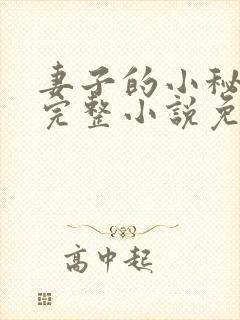 妻子的小秘
完整小説免
高中起